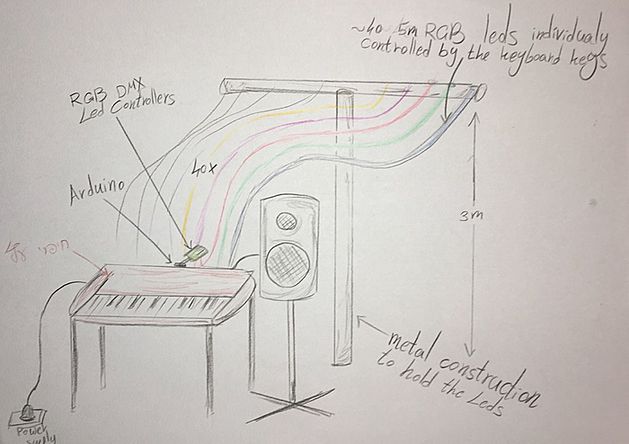 ~40 5m RGB leds individualy
controlled by the keyboard keys
RGB DMX
Led Controllers
40x
Arduino
3m
metal construction
to hold the Leds
Power
supply